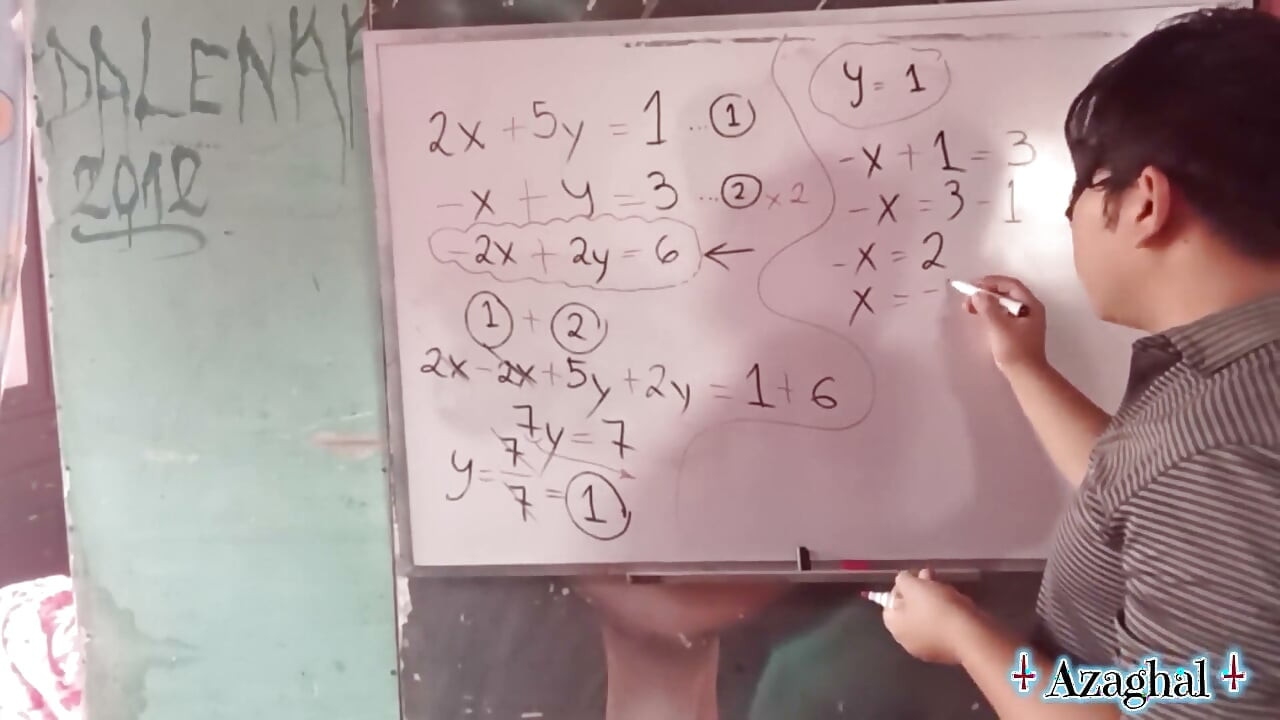 DALENA
2012
2x + 5y = 1 ... ①
-x + y = 3 ... ② x 2
-2x + 2y = 6 ←
① + ②
2x - 2x + 5y + 2y = 1 + 6
7y = 7
y = 7/7 = 1
y = 1
-x + 1 = 3
-x = 3 - 1
-x = 2
x = -
Azaghal